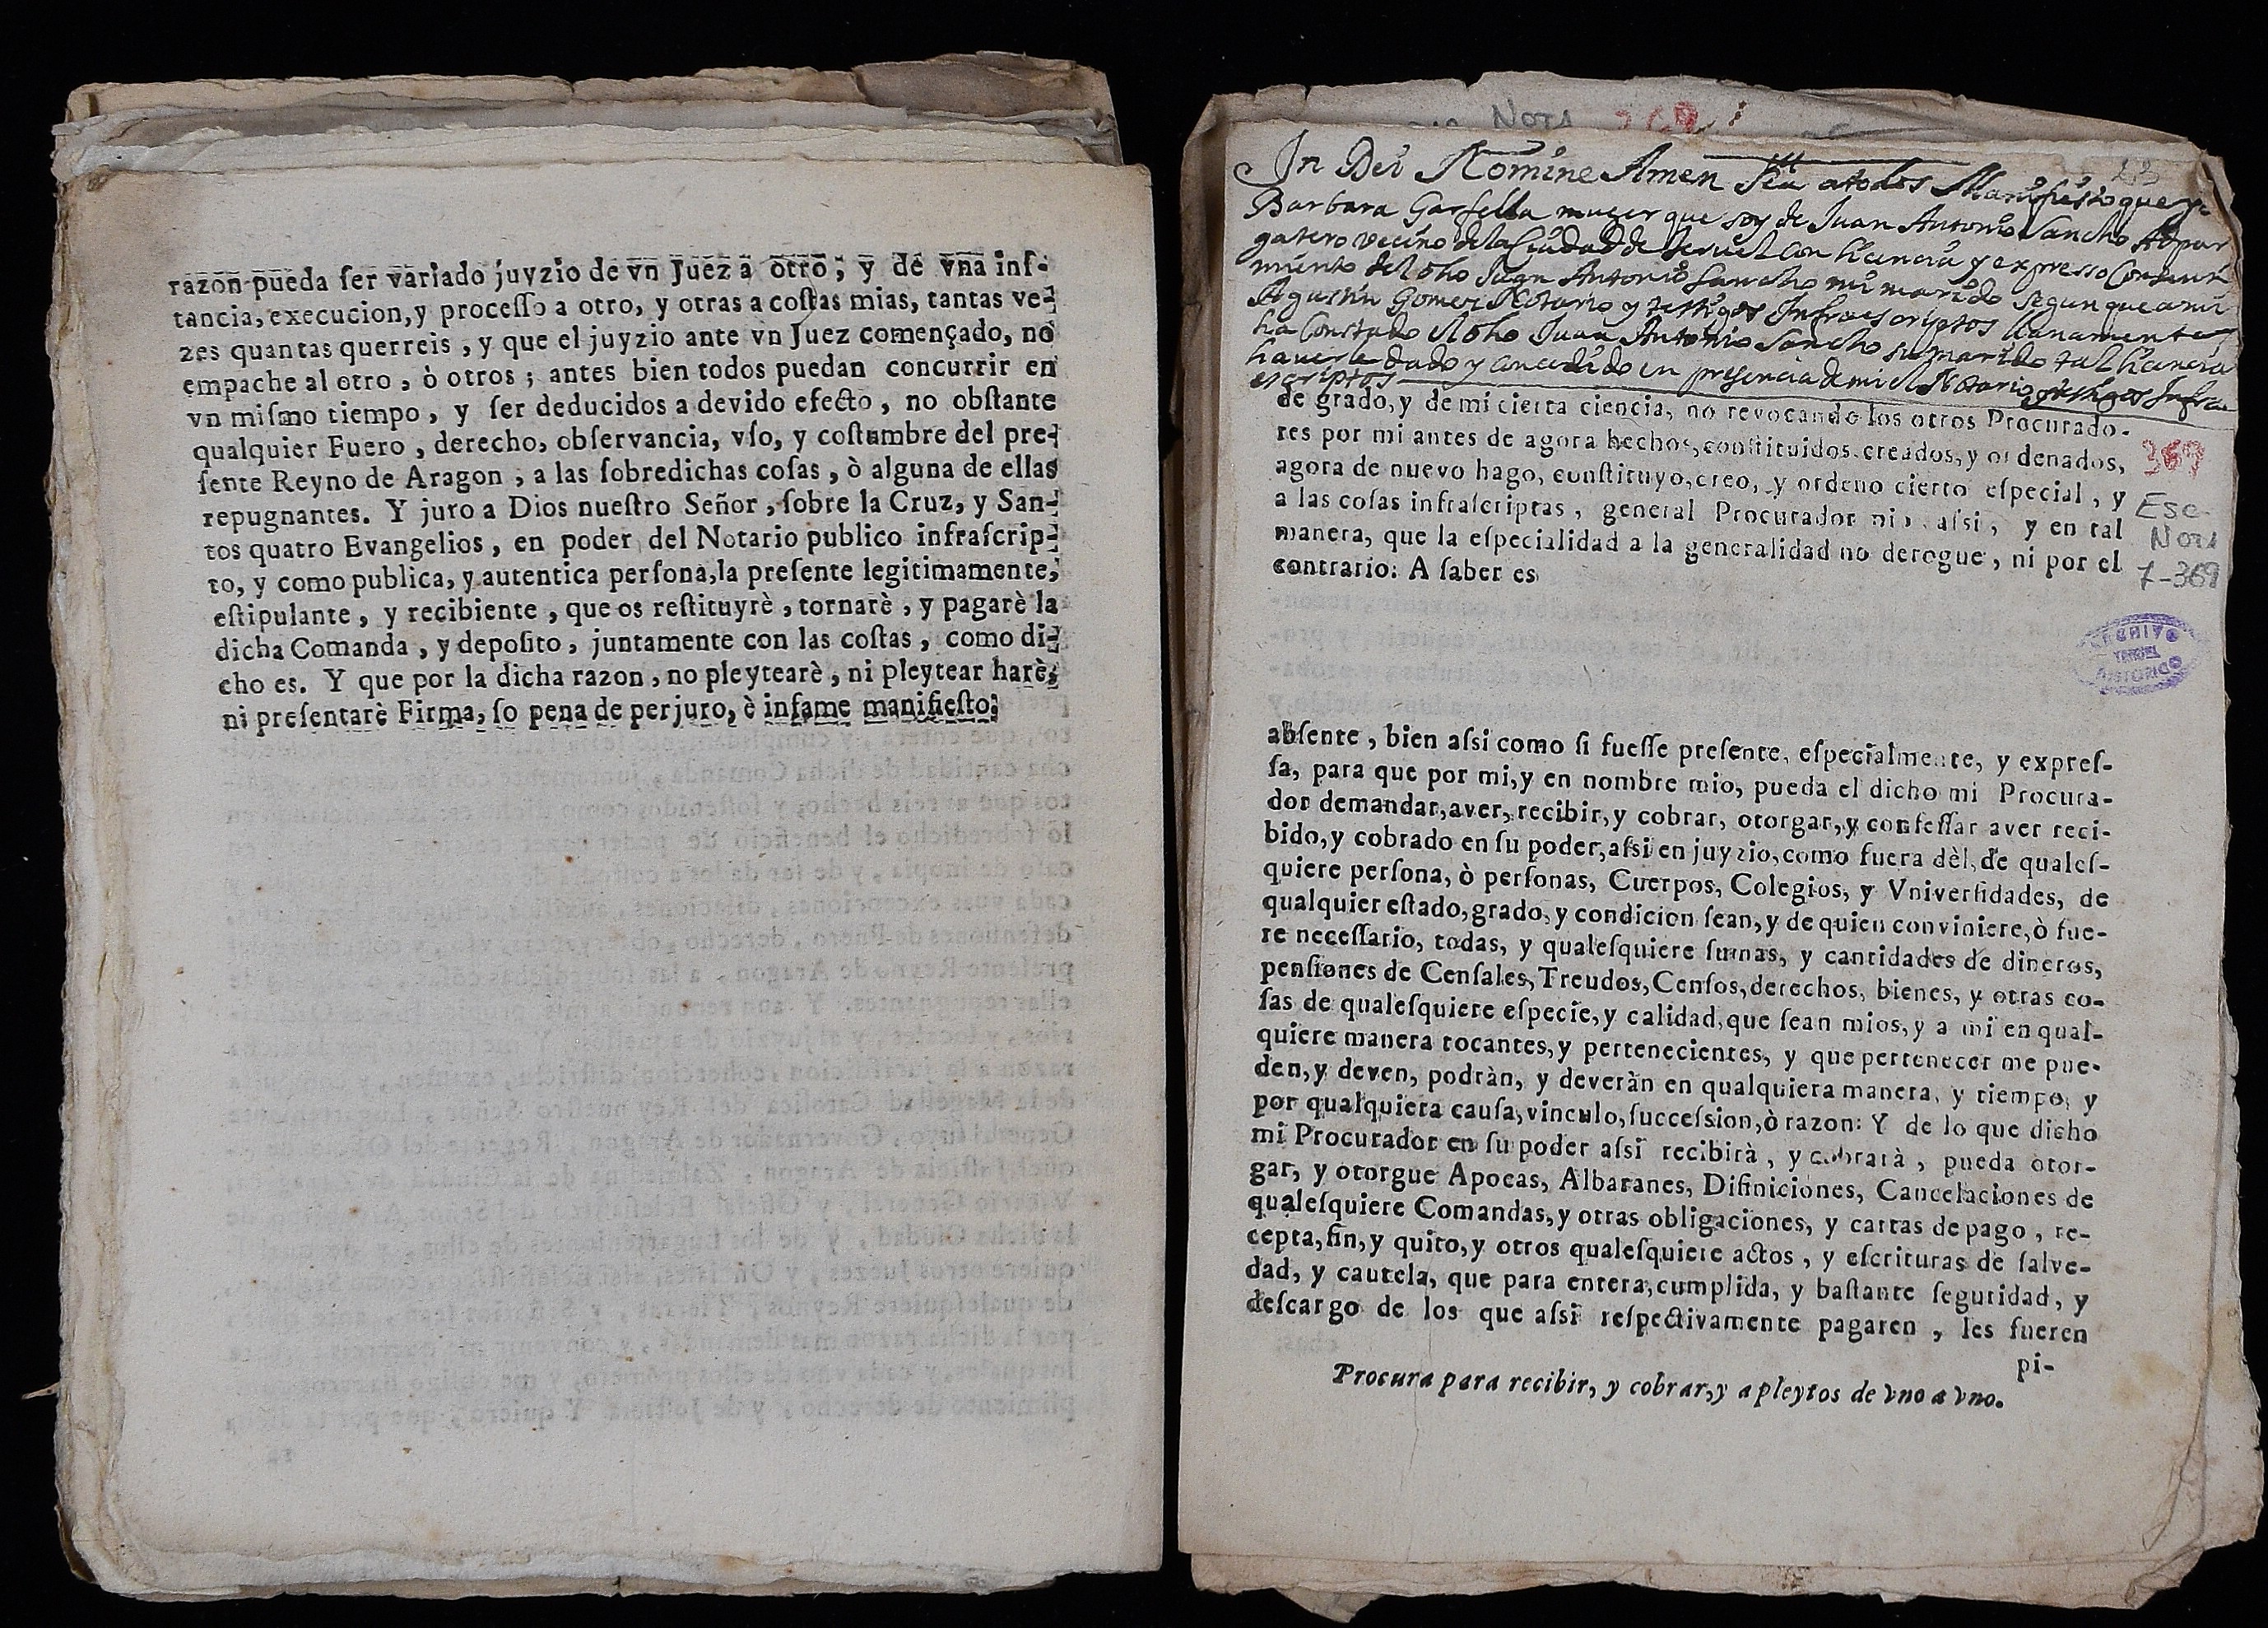 razon pueda ſer variado juyzio de vn Juez a otro; y de vna inſ-
tancia, execucion, y proceſſo a otro, y otras a coſtas mias, tantas ve-
zes quantas querreis, y que el juyzio ante vn Juez començado, no
empache al otro, ò otros; antes bien todos puedan concurrir en
vn miſmo tiempo, y ſer deducidos a devido efecto, no obſtante
qualquier Fuero, derecho, obſervancia, vſo, y coſtumbre del pre-
ſente Reyno de Aragon, a las ſobredichas coſas, ò alguna de ellas
repugnantes. Y juro a Dios nueſtro Señor, ſobre la Cruz, y San-
tos quatro Evangelios, en poder del Notario publico infraſcrip-
to, y como publica, y autentica perſona, la preſente legitimamente,
eſtipulante, y recibiente, que os reſtituyrè, tornarè, y pagarè la
dicha Comanda, y depoſito, juntamente con las coſtas, como di-
cho es. Y que por la dicha razon, no pleytearè, ni pleytear harè,
ni preſentarè Firma, ſo pena de perjuro, è infame manifieſto.
NOTA 369
23
In Dei Nomine Amen Sea atodos Manifiesto que yo
Barbara Garfella muger que soy de Juan Antonio Sancho Alpar
gatero vecino dela Ciudad de Teruel con licencia y expresso Consenti
miento del dho Juan Antonio Sancho mi marido segun que a mi
Agustin Gomez Notario y testigos Infraescriptos llanamente
ha Constado el dho Juan Antonio Sancho su marido tal licencia
haverle dado y concedido en presencia de mi el Notario y testigos Infra
escriptos
de grado, y de mi cierta ciencia, no revocando los otros Procurado-
res por mi antes de agora hechos, conſtituidos, creados, y ordenados,
agora de nuevo hago, conſtituyo, creo, y ordeno cierto eſpecial, y
a las coſas infraſcriptas, general Procurador mio aſsi, y en tal
manera, que la eſpecialidad a la generalidad no derogue, ni por el
contrario: A ſaber es
369
Esc
Nota
7-369
ARCHIVO
TERUEL
HISTORICO
abſente, bien aſsi como ſi fueſſe preſente, eſpecialmente, y expreſ-
ſa, para que por mi, y en nombre mio, pueda el dicho mi Procura-
dor demandar, aver, recibir, y cobrar, otorgar, y confeſſar aver reci-
bido, y cobrado en ſu poder, aſsi en juyzio, como fuera dèl, de qualeſ-
quiere perſona, ò perſonas, Cuerpos, Colegios, y Vniverſidades, de
qualquier eſtado, grado, y condicion ſean, y de quien conviniere, ò fue-
re neceſſario, todas, y qualeſquiere ſumas, y cantidades de dineros,
penſiones de Cenſales, Treudos, Cenſos, derechos, bienes, y otras co-
ſas de qualeſquiere eſpecie, y calidad, que ſean mios, y a mi en qual-
quiere manera tocantes, y pertenecientes, y que pertenecer me pue-
den, y deven, podràn, y deveràn en qualquiera manera, y tiempo, y
por qualquiera cauſa, vinculo, ſucceſsion, ò razon: Y de lo que dicho
mi Procurador en ſu poder aſsi recibirà, y cobrarà, pueda otor-
gar, y otorgue Apocas, Albaranes, Difiniciones, Cancelaciones de
qualeſquiere Comandas, y otras obligaciones, y cartas de pago, re-
cepta, fin, y quito, y otros qualeſquiere actos, y eſcrituras de ſalve-
dad, y cautela, que para entera, cumplida, y baſtante ſeguridad, y
deſcargo de los que aſsi reſpectivamente pagaren, les fueren
pi-
Procura para recibir, y cobrar, y a pleytos de vno a vno.